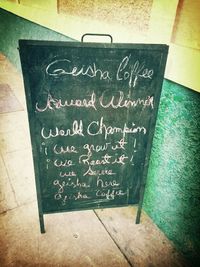 Geisha Coffee
Award Winner
World Champion
¡we grow it!
¡we Roast it!
we Serve
geisha Here
geisha Coffee